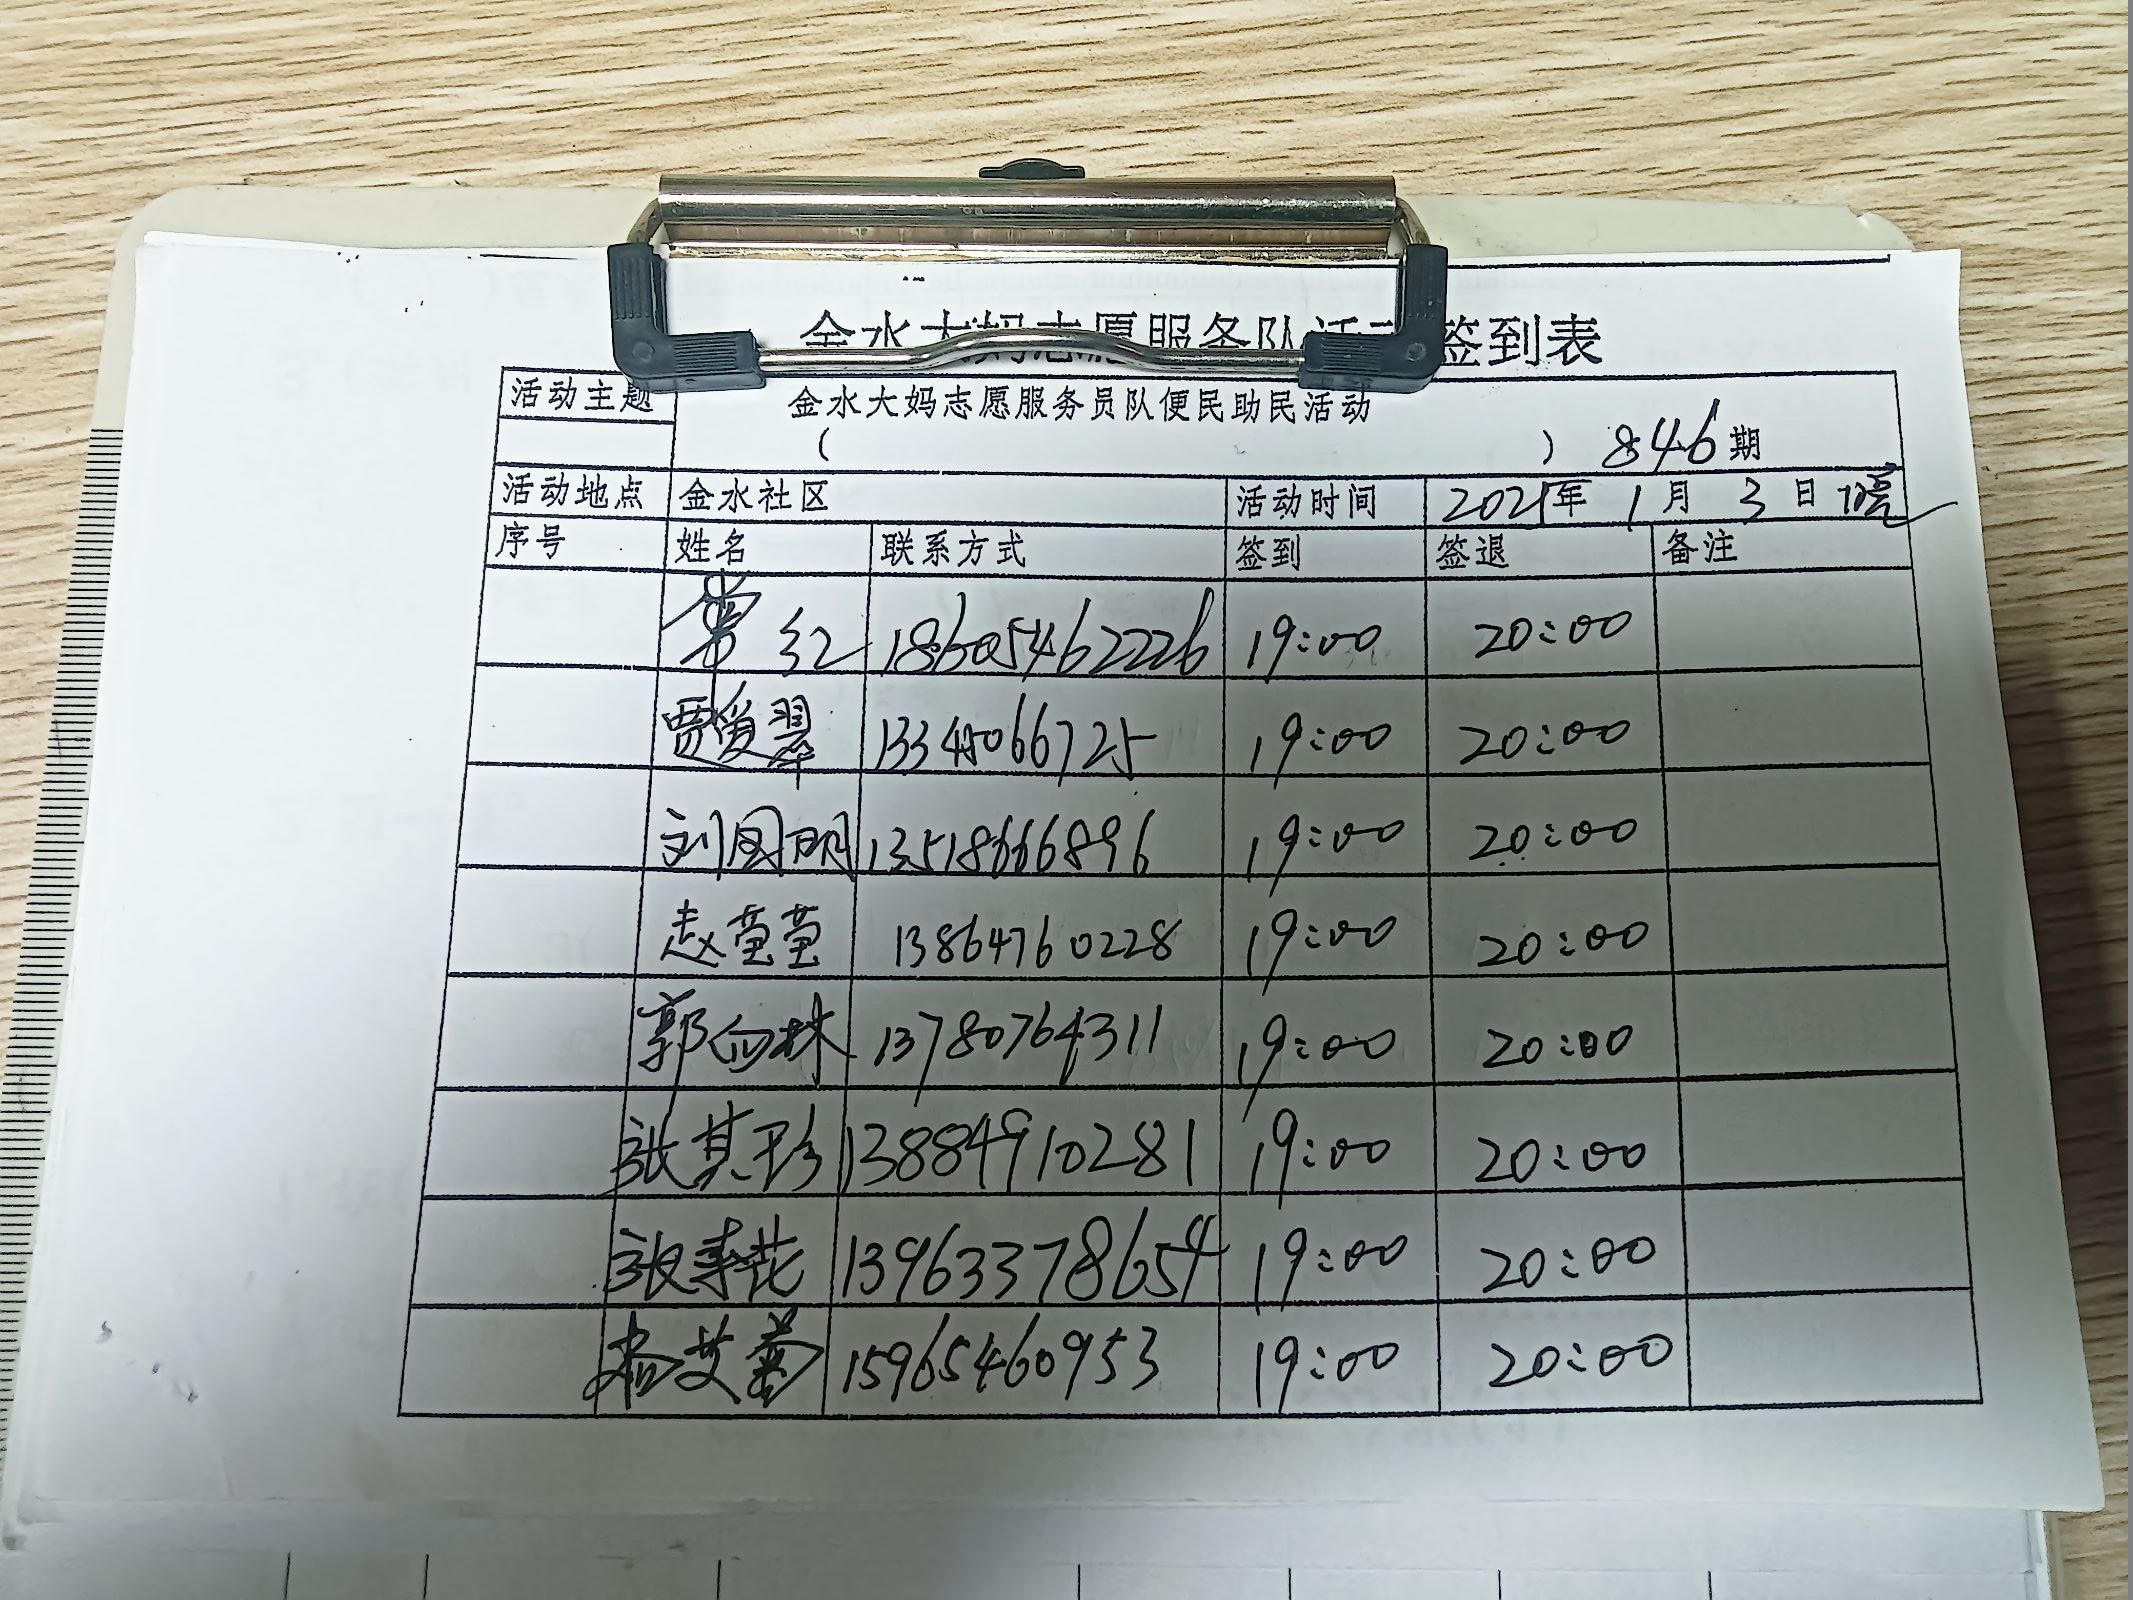 金水大妈志愿服务队活动签到表
活动主题 金水大妈志愿服务员队便民助民活动
( ) 846期
活动地点 金水社区 活动时间 2021年 1月 3日 晚
序号 姓名 联系方式 签到 签退 备注
常红 18605462226 19:00 20:00
贾爱翠 13345066725 19:00 20:00
刘国明 13518666896 19:00 20:00
赵萱萱 13864760228 19:00 20:00
郭向林 13780764311 19:00 20:00
张其珍 13884910281 19:00 20:00
张春花 13963378654 19:00 20:00
艾 15965460953 19:00 20:00